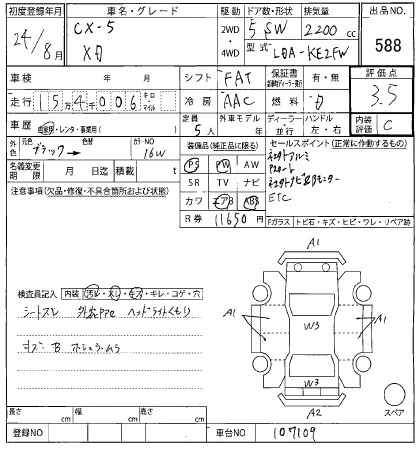 初度登録年月 車名・グレード 駆動 ドア数・形状 排気量 出品NO.
24/8月 CX-5 2WD・4WD 5 SW 2200 cc 588
XD 型式 LDA-KE2FW
車検 年 月 シフト FAT 保証書 有・無 評価点
走行 154,006 キロ マイル 冷房 AAC 燃料 3.5
車歴 自家用・レンタ・事業用( ) 定員 5人 外車モデル 年 ディーラー 並行 ハンドル 左・右 内装評価 C
外色 元色 ブラック→ 色替 カラーNO 16W
装備品(純正品に限る) セールスポイント(正常に作動するもの)
名義変更期限 月 日迄 積載 t
PS PW AW
SR TV ナビ
カワ エアB ABS
ETC
R券 11650円
注意事項(欠品・修復・不具合箇所および状態)
Fガラス トビ石・キズ・ヒビ・ワレ・リペア跡
検査員記入 内装 汚れ・スレ・キズ・キレ・コゲ・穴
シートスレ ヘッドライトくもり
A1
A1 A1
W3
W3
A2
スペア
長さ cm 幅 cm 高さ cm
登録NO 車台NO 107109